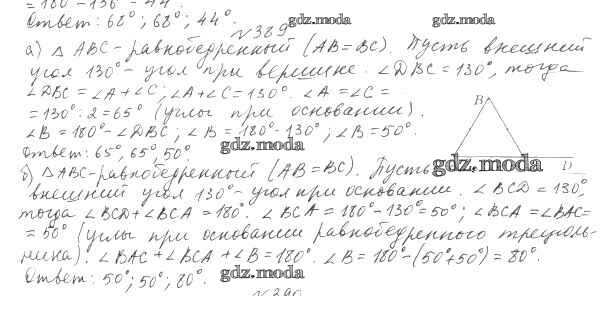 Ответ: 68°; 68°; 44°.
gdz.moda gdz.moda
№389
а) △ ABC - равнобедренный (AB = BC). Пусть внешний
угол 130° - угол при вершине. ∠DBC = 130°, тогда
∠DBC = ∠A + ∠C; ∠A + ∠C = 130°. ∠A = ∠C =
= 130° : 2 = 65° (углы при основании).
∠B = 180° - ∠DBC; ∠B = 180° - 130°; ∠B = 50°.
B
D
Ответ: 65°, 65°, 50°
gdz.moda
gdz.moda
б) △ ABC - равнобедренный (AB = BC). Пусть
внешний угол 130° - угол при основании. ∠BCD = 130°,
тогда ∠BCD + ∠BCA = 180°. ∠BCA = 180° - 130° = 50°; ∠BCA = ∠BAC =
= 50° (углы при основании равнобедренного треуголь-
ника). ∠BAC + ∠BCA + ∠B = 180°. ∠B = 180° - (50° + 50°) = 80°.
Ответ: 50°; 50°; 80°.
gdz.moda